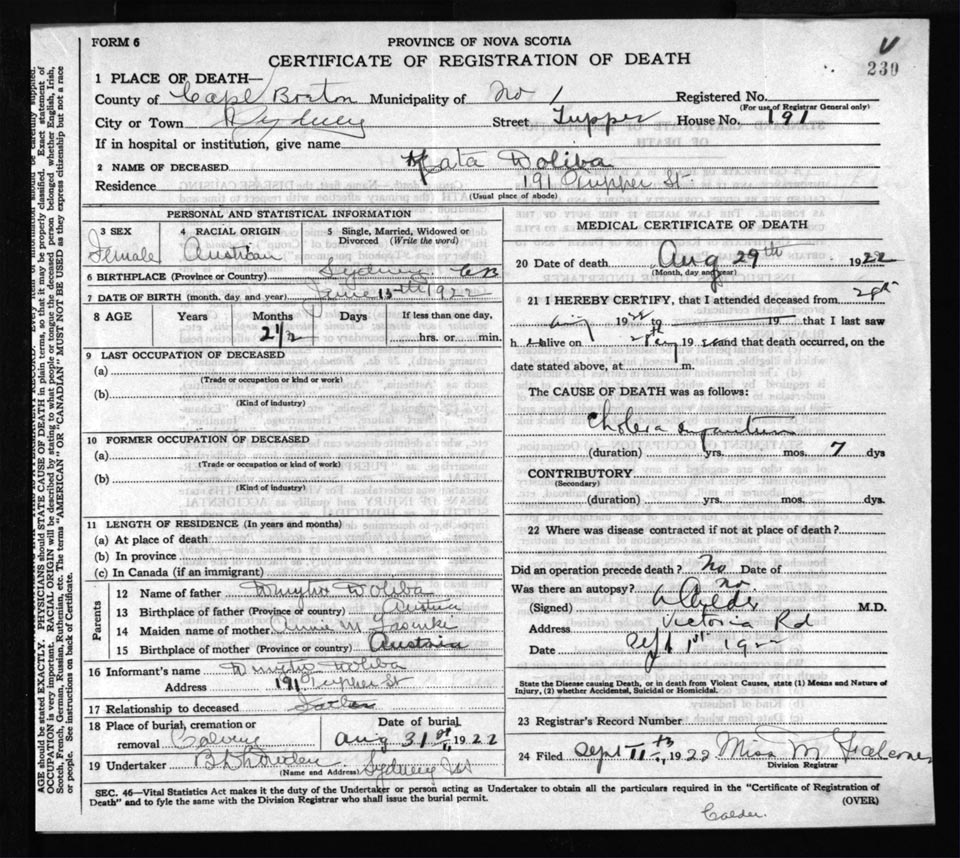 FORM 6
PROVINCE OF NOVA SCOTIA
CERTIFICATE OF REGISTRATION OF DEATH
230
1 PLACE OF DEATH—
County of Cape Breton Municipality of No 1 Registered No.
(For use of Registrar General only)
City or Town Sydney Street Tupper House No. 191
If in hospital or institution, give name
2 NAME OF DECEASED Kata Woliba
Residence 191 Tupper St.
(Usual place of abode)
PERSONAL AND STATISTICAL INFORMATION
3 SEX 4 RACIAL ORIGIN 5 Single, Married, Widowed or Divorced (Write the word)
Female Austrian
6 BIRTHPLACE (Province or Country) Sydney CB
7 DATE OF BIRTH (month, day and year) June 15th 1922
8 AGE Years Months Days If less than one day,
2 1/2 hrs. or min.
9 LAST OCCUPATION OF DECEASED
(a)
(Trade or occupation or kind or work)
(b)
(Kind of industry)
10 FORMER OCCUPATION OF DECEASED
(a)
(Trade or occupation or kind of work)
(b)
(Kind of industry)
11 LENGTH OF RESIDENCE (In years and months)
(a) At place of death
(b) In province
(c) In Canada (if an immigrant)
Parents
12 Name of father Woliba
13 Birthplace of father (Province or country) Austria
14 Maiden name of mother Annie M
15 Birthplace of mother (Province or country) Austria
16 Informant's name Woliba
Address 191 Tupper St
17 Relationship to deceased Father
18 Place of burial, cremation or removal Calvary
Date of burial Aug 31st 1922
19 Undertaker
(Name and Address) Sydney
MEDICAL CERTIFICATE OF DEATH
20 Date of death Aug 29th 1922
(Month, day and year)
21 I HEREBY CERTIFY, that I attended deceased from 29th
Aug 1922 to 19 that I last saw
h alive on 19 and that death occurred, on the
date stated above, at m.
The CAUSE OF DEATH was as follows:
Cholera infantum
(duration) yrs. mos. 7 dys
CONTRIBUTORY
(Secondary)
(duration) yrs. mos. dys.
22 Where was disease contracted if not at place of death?
Did an operation precede death? No Date of
Was there an autopsy? no
(Signed) Calder M.D.
Address Victoria Rd
Date Sept 1st 1922
State the Disease causing Death, or in death from Violent Causes, state (1) Means and Nature of
Injury, (2) whether Accidental, Suicidal or Homicidal.
23 Registrar's Record Number
24 Filed Sept 11th 1922 Miss M
Division Registrar
SEC. 46—Vital Statistics Act makes it the duty of the Undertaker or person acting as Undertaker to obtain all the particulars required in the "Certificate of Registration of
Death" and to fyle the same with the Division Registrar who shall issue the burial permit.
(OVER)
Calder.
AGE should be stated EXACTLY. PHYSICIANS should STATE CAUSE OF DEATH in plain terms, so that it may be properly classified. Exact statement of
OCCUPATION is very important. RACIAL ORIGIN will be described by stating to what people or tongue the deceased person belonged whether English, Irish,
Scotch, French, German, Russian, Ruthenian, etc. The terms "AMERICAN" OR "CANADIAN" MUST NOT BE USED as they express citizenship but not a race
or people. See instructions on back of Certificate.